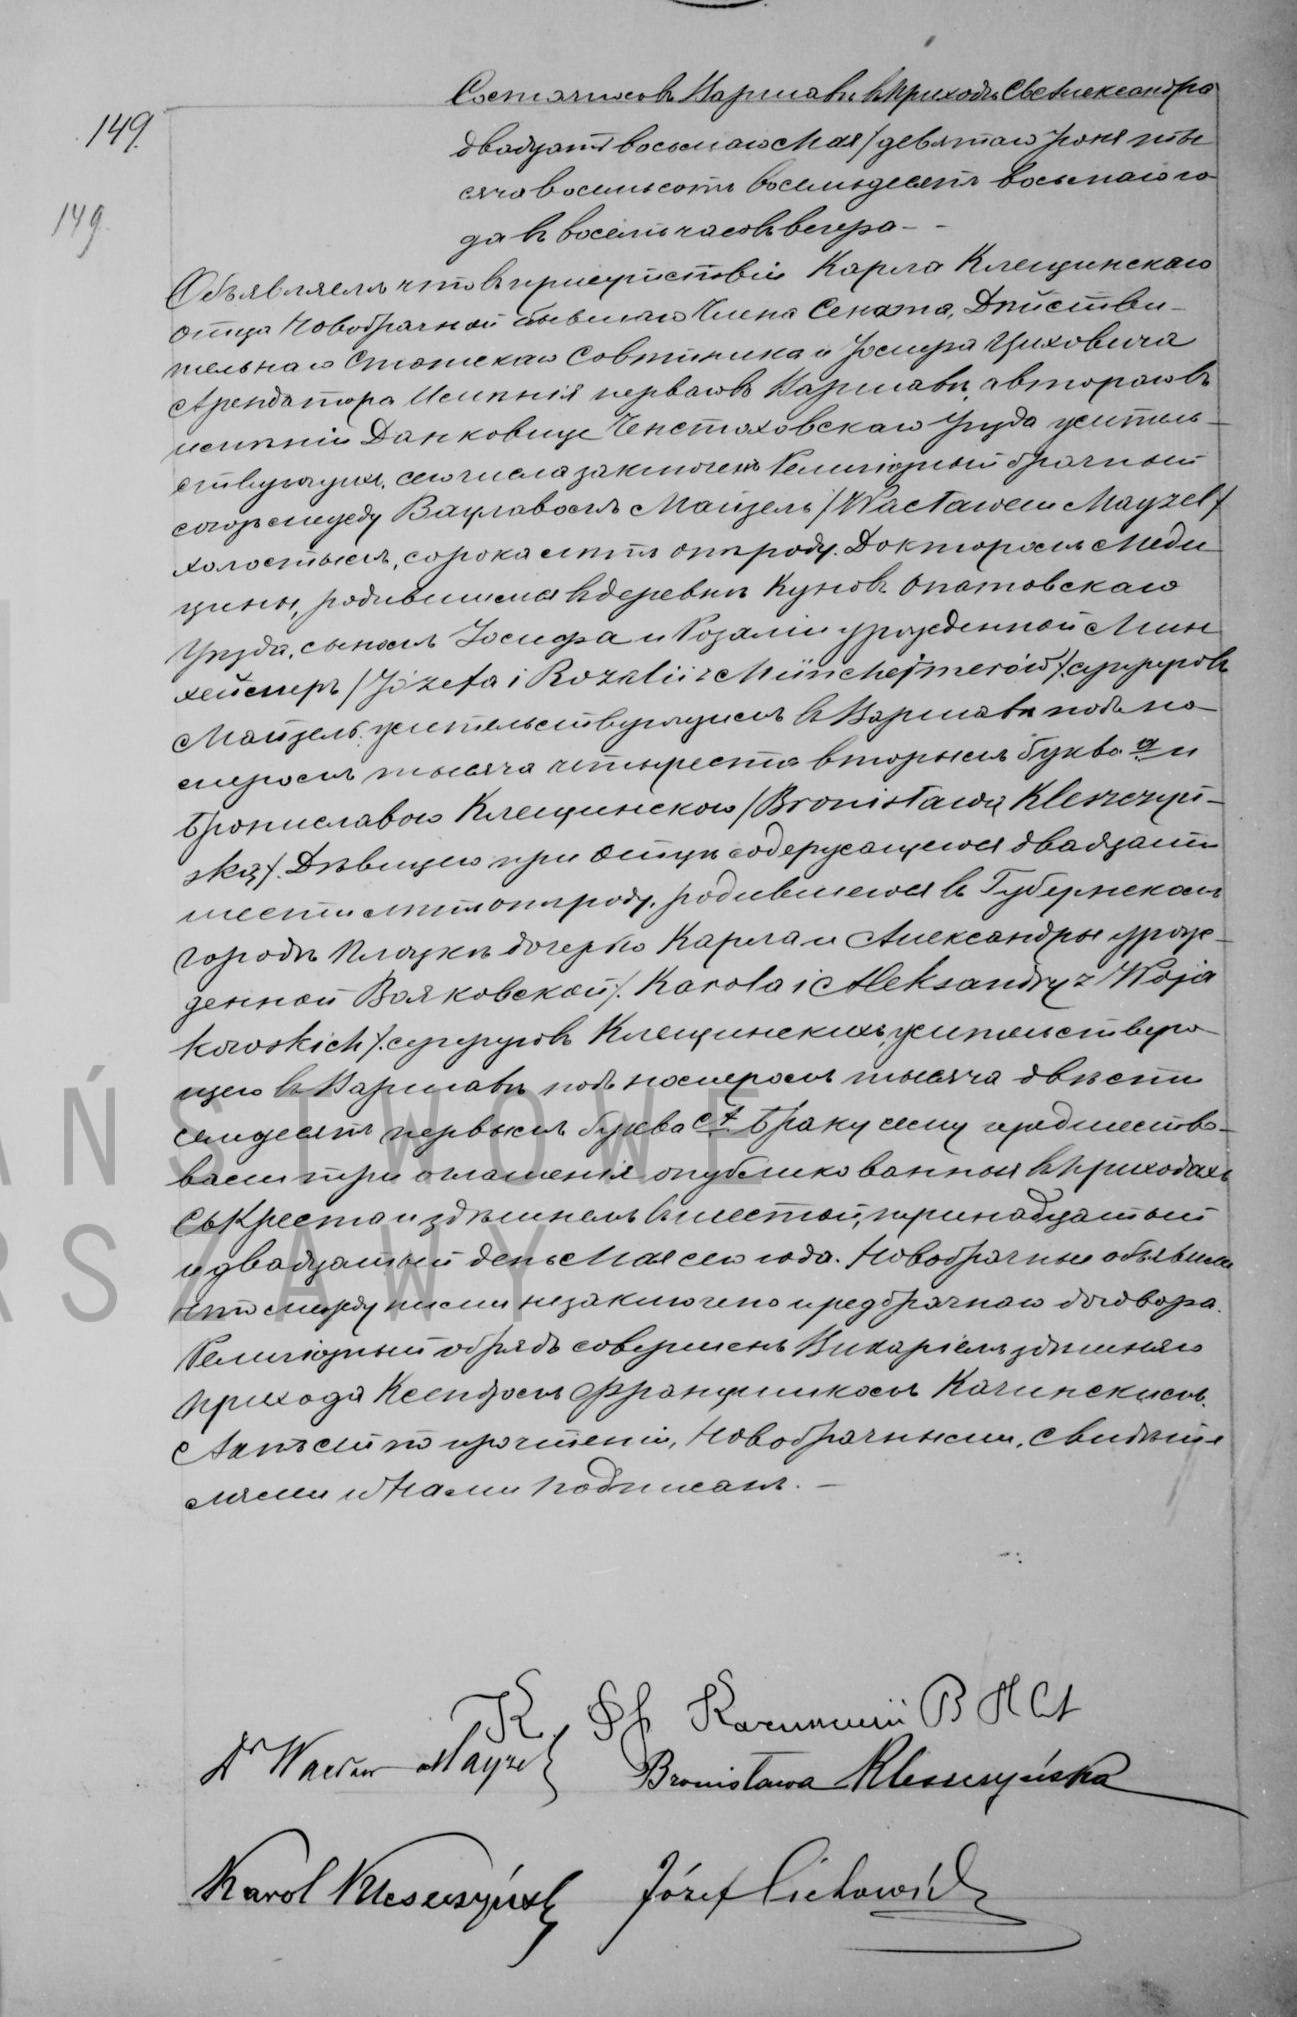 149.
149.
Состоялось въ Варшавѣ въ приходѣ Св Александра
двадцать восьмаго Мая / девятаго Іюня ты
сяча восемьсотъ восемьдесятъ восьмаго го
да въ восемь часовъ вечера - -
Объявляемъ что въ присутствіи Карла Клещинскаго
отца Новобрачной бывшаго Члена Сената, Дѣйстви-
тельнаго Статскаго Совѣтника и Іосифа Циховича
Арендатора Имѣнія перваго въ Варшавѣ, а втораго въ
имѣніи Данковице Ченстоховскаго Уѣзда житель-
ствующихъ, сего числа заключенъ Религіозный брачный
союзъ между Вацлавомъ Майзель / Wacławem Mayzel /
холостымъ, сорока лѣтъ отъ роду. Докторомъ Меди
цины, родившимся въ деревнѣ Куновъ Опатовскаго
Уѣзда, сыномъ Іосифа и Розаліи урожденной Мин
хеймеръ / Józefa i Rozalii z Münchejmerów / супруговъ
Майзель, жительствующимъ въ Варшавѣ подъ но-
меромъ тысяча четыреста вторымъ буква а и
Брониславою Клещинскою / Bronisławą Kleszczyń-
ską /. Дѣвицею при Отцѣ содержащеюся двадцати
шести лѣтъ отъ роду, родившеюся въ Губернскомъ
городѣ Плоцкѣ дочерью Карла и Александры урож-
денной Вояковской /. Karola i Aleksandry z Woja
kowskich /. супруговъ Клещинскихъ, жительствую
щею въ Варшавѣ подъ номеромъ тысяча двѣсти
семдесятъ первымъ буква Браку сему предшество-
вали три оглашенія опубликованныя въ приходахъ
Св Креста и здѣшнемъ въ шестый, тринадцатый
и двадцатый день Мая сего года. Новобрачные объявили
что между ними не заключено предбрачнаго договора.
Религіозный обрядъ совершенъ Викаріемъ здѣшняго
прихода Ксендзомъ Францишкомъ Качинскимъ.
Актъ сей по прочтеніи, Новобрачными, Свидѣте
лями и Нами подписанъ. -
К Фр Качинскій В П С А
Dr Wacław Mayzel Bronisława Kleszczyńska
Karol Kleszczyński Józef Cichowicz
AŃSTWOWE
RSZAWY